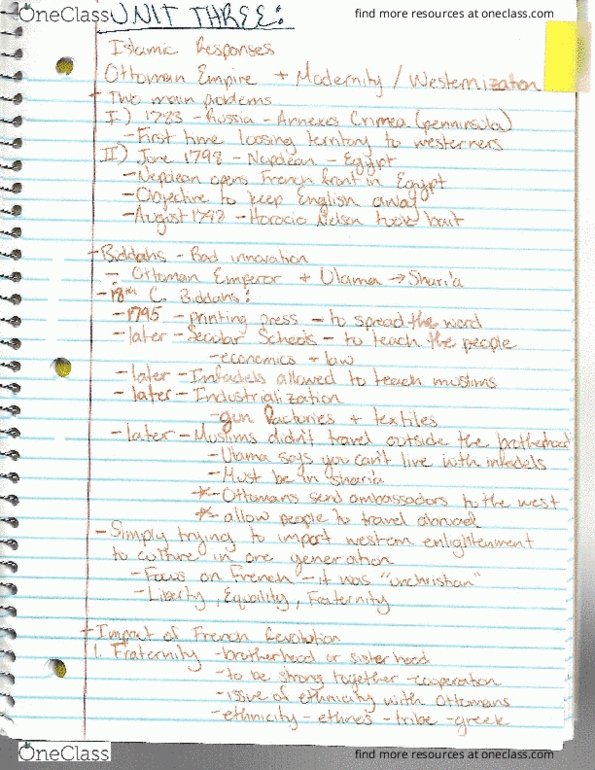 OneClass
find more resources at oneclass.com
UNIT THREE:
Islamic Responses
Ottoman Empire + Modernity / Westernization
+ Two main problems
I.) 1783 - Russia - Annexes Crimea (penninsula)
- First time loosing territory to westerners
II) June 1798 - Nepolean - Egypt
- Nepolean opens French front in Egypt
- Objective to keep English away
- August 1798 - Horacio Nelson took bait
+ Biddahs - Bad innovation
- Ottoman Emperor + Ulama → Shari'a
- 18th C. Biddahs:
- 1795 - printing press - to spread the word
- later - Secular Schools - to teach the people
- economics + law
- later - Infadels allowed to teach muslims
- later - Industrialization
- gun factories + textiles
- later - Muslims didn't travel outside the brotherhood
- Ulama says you can't live with infedels
- Must be in sharia
* - Ottomans send ambassadors to the west
* - allow people to travel abroad
- Simply trying to import western enlightenment
to culture in one generation
- Focus on French - it was "unchristian"
- Liberty, Equality, Fraternity
+ Impact of French Revolution
1. Fraternity - brotherhood or sisterhood
- to be strong together - cooperation
- issue of ethnicity with Ottomans
- ethnicity - ethnos - tribe - greek
OneClass
find more resources at oneclass.com